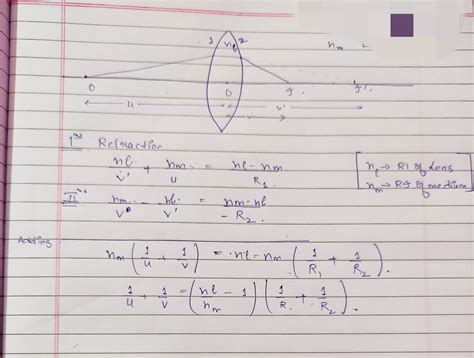 1 nℓ 2 nm
O O I I'
u v'
v
Ist Refraction
nℓ/v' + nm/u = nℓ - nm/R1
[nℓ → RI of lens
nm → RI of medium]
IInd nm/v - nℓ/v' = nm - nℓ/-R2.
Adding
nm (1/u + 1/v) = nℓ - nm (1/R1 + 1/R2).
1/u + 1/v = (nℓ/nm - 1) (1/R1 + 1/R2).